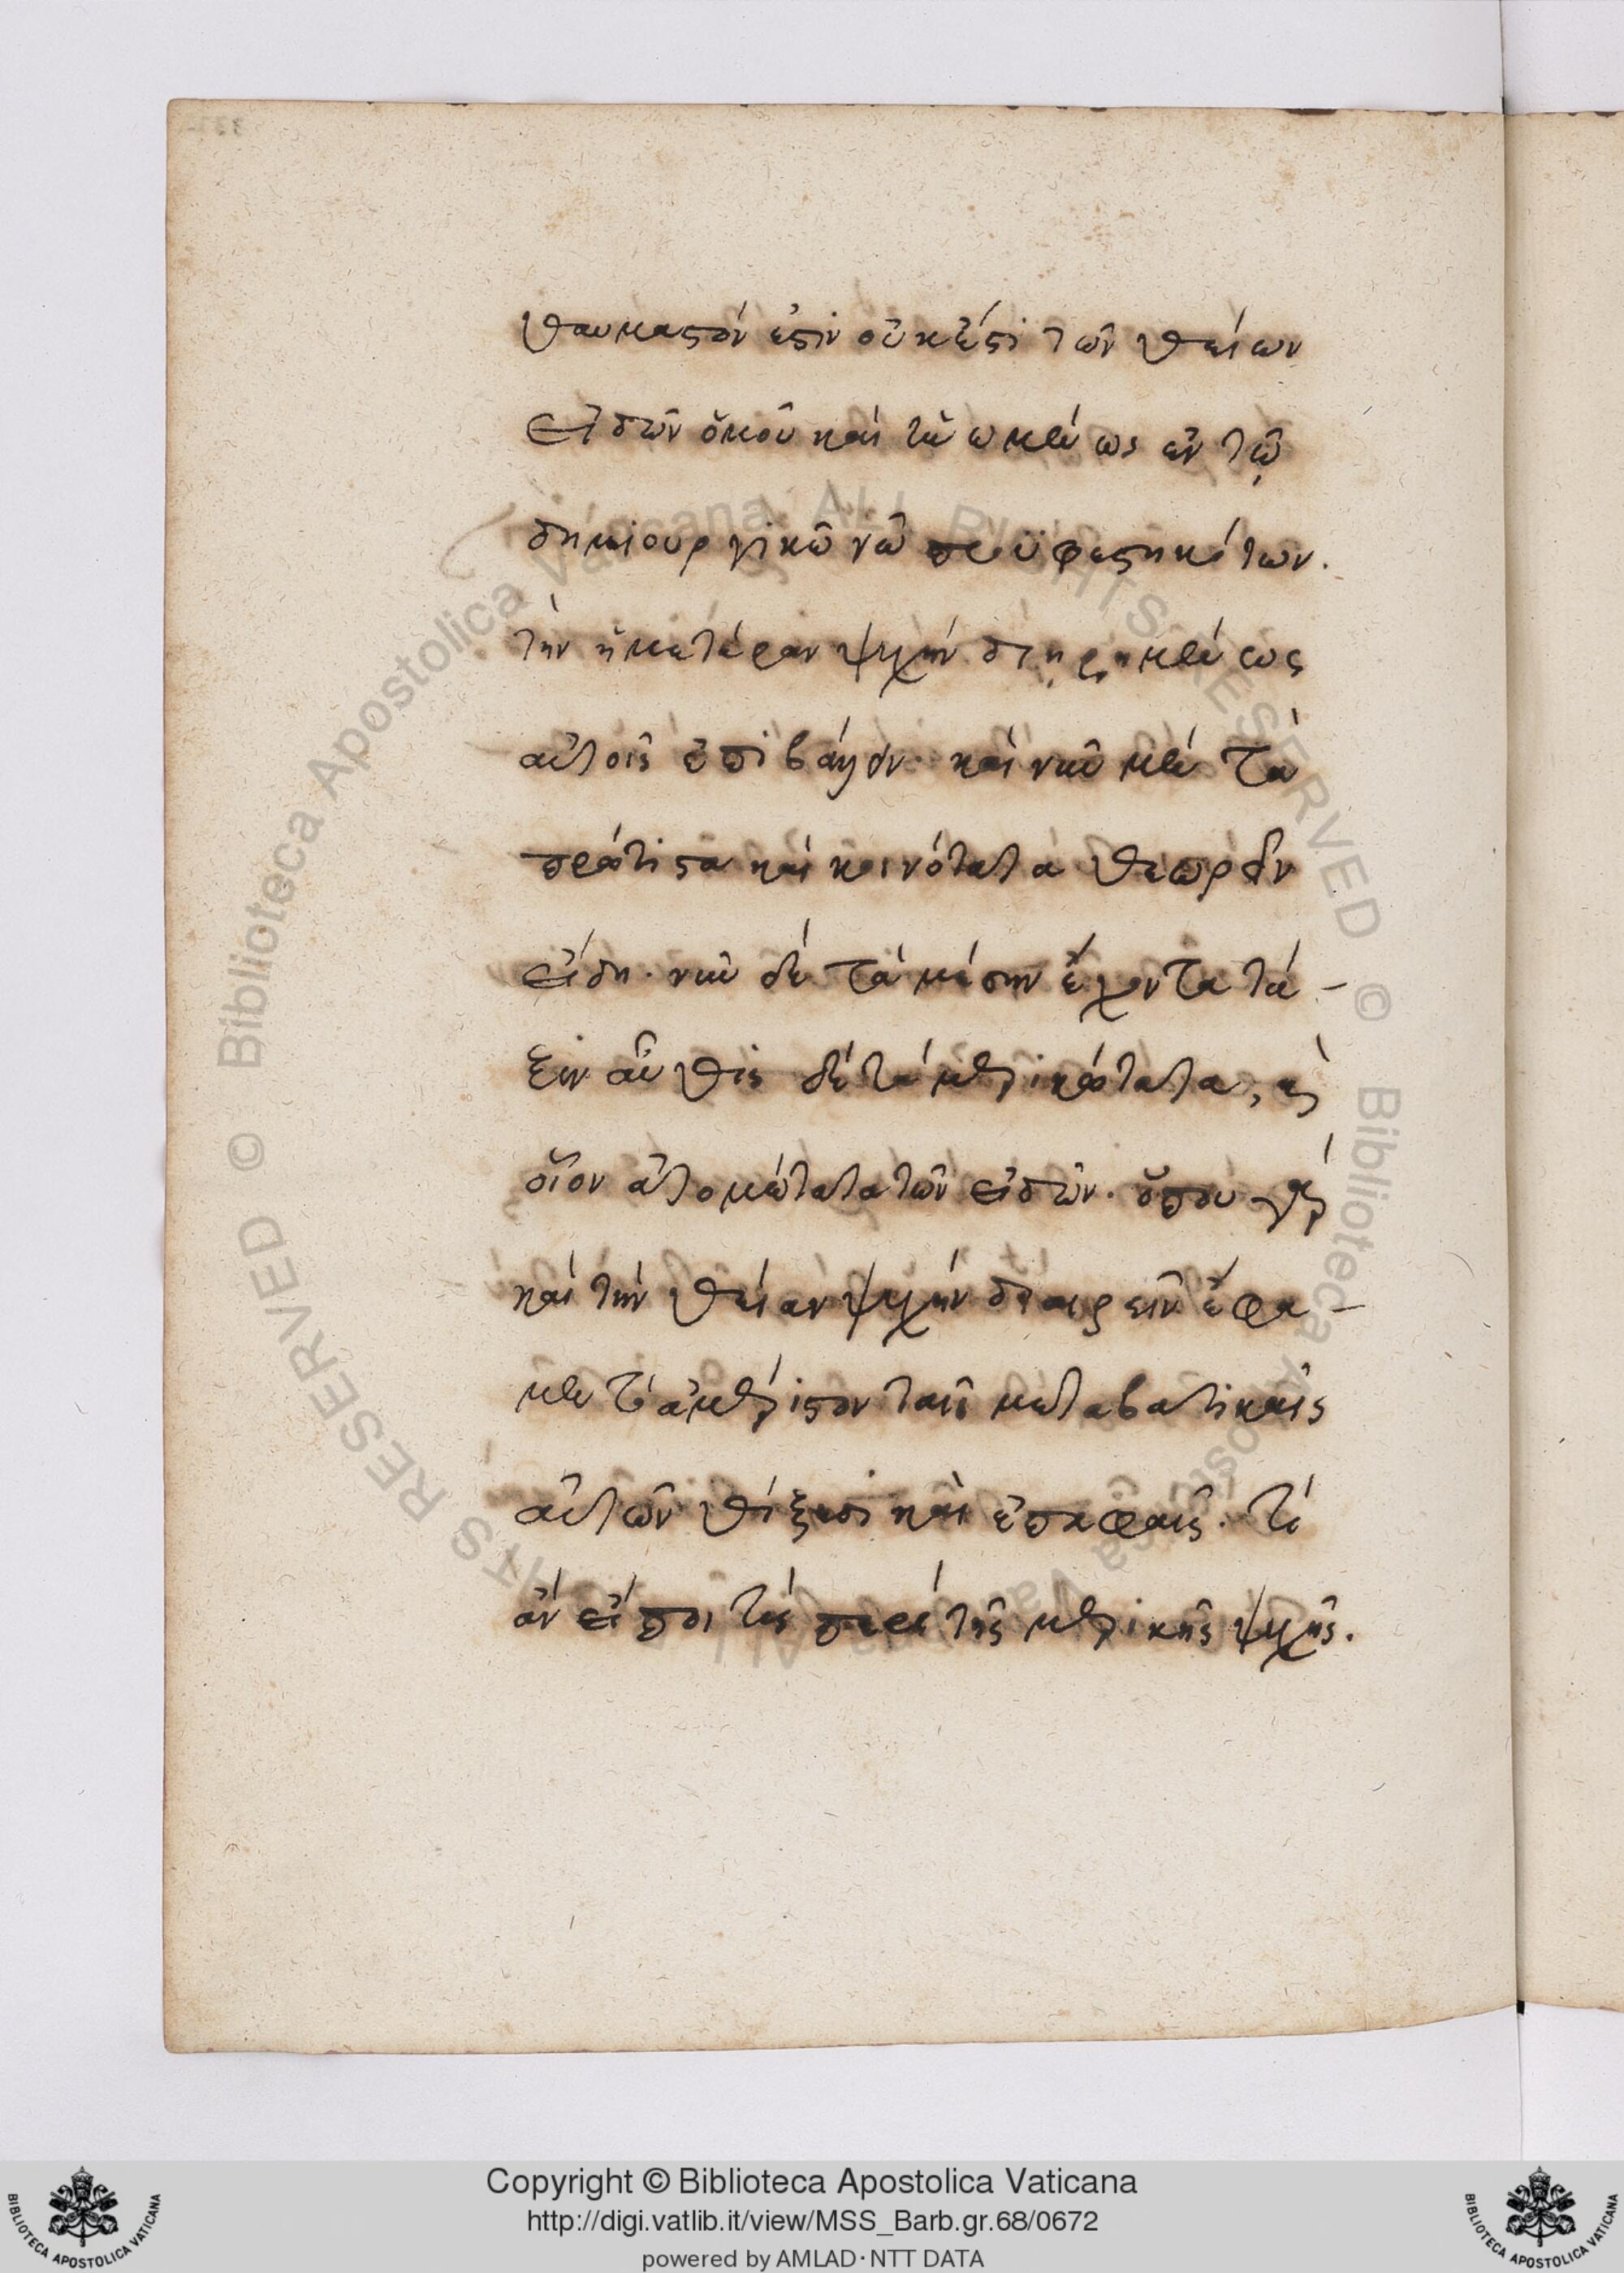 θαυμαστόν ἐστιν οὐκέστι τῶν θείων
εἰδῶν ὁμοῦ καὶ ἡνωμένως ἐν τῷ
δημιουργικῶ νῶ προϋφεστηκότων.
τὴν ἡμετέραν ψυχὴν διῃρημένως
αὐτοῖς ἐπιβάλλειν. καὶ νῦν μὲν τὰ
πρώτιστα καὶ κοινότατα θεωρεῖν
εἴδη. νῦν δὲ τὰ μέσην ἔχοντα τά-
ξιν αὖθις δὲ τὰ μερικώτατα, καὶ
οἷον ἀτομώτατα τῶν εἰδῶν. ὅπου γὰρ
καὶ τὴν θείαν ψυχὴν διαιρεῖν ἔφα-
μεν τὸ ἀμέριστον ταῖς μεταβατικαῖς
αὐτῶν θίξεσι καὶ ἐπαφαῖς. τί
ἂν εἴποι τίς περὶ τῆς μερικῆς ψυχῆς.
Copyright © Biblioteca Apostolica Vaticana
http://digi.vatlib.it/view/MSS_Barb.gr.68/0672
powered by AMLAD · NTT DATA